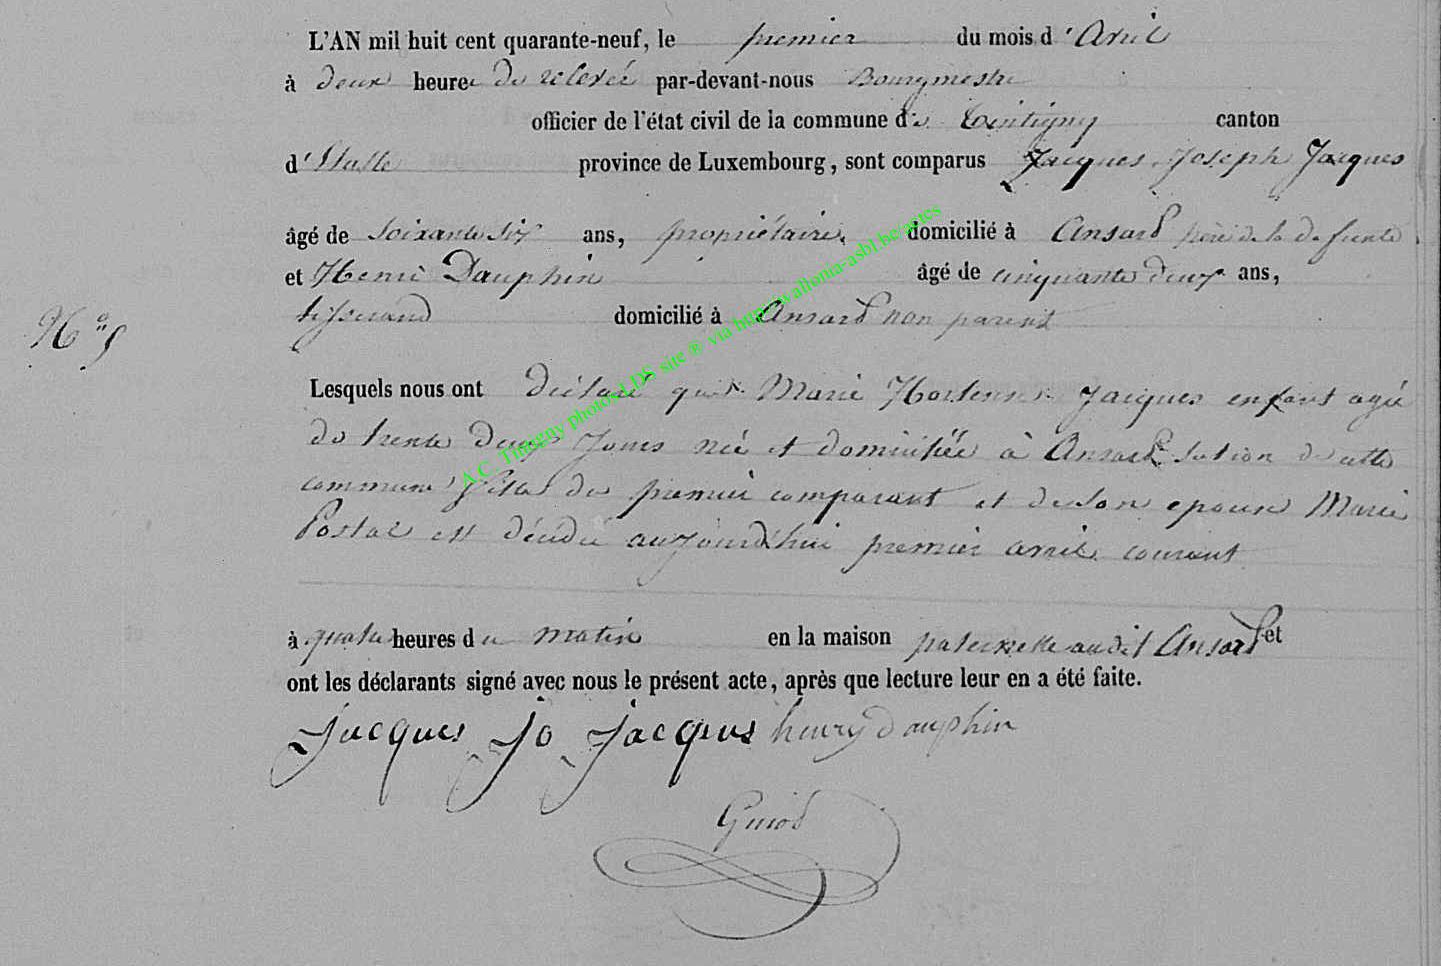 L'AN mil huit cent quarante-neuf, le premier du mois d'Avril
à deux heure de relevée par-devant-nous Bourgmestre
officier de l'état civil de la commune de Tintigny canton
d'Etalle province de Luxembourg, sont comparus Jacques Joseph Jacques
âgé de soixante six ans, propriétaire, domicilié à Ansard père de la defunte
et Henri Dauphin âgé de cinquante deux ans,
tisserand domicilié à Ansard non parent
N° 5
Lesquels nous ont déclaré que Marie Hortense Jacques enfant agée
de trente deux jours née et domiciliée à Ansard section de cette
commune fille du premier comparant et de son epouse Marie
Postal est décédée aujourd'hui premier avril courant
à quatre heures du matin en la maison paternelle audit Ansard et
ont les déclarants signé avec nous le présent acte, après que lecture leur en a été faite.
Jacques Jo Jacques henry dauphin
A.C. Tintigny photos LDS site ® via http://wallonia-asbl.be/actes